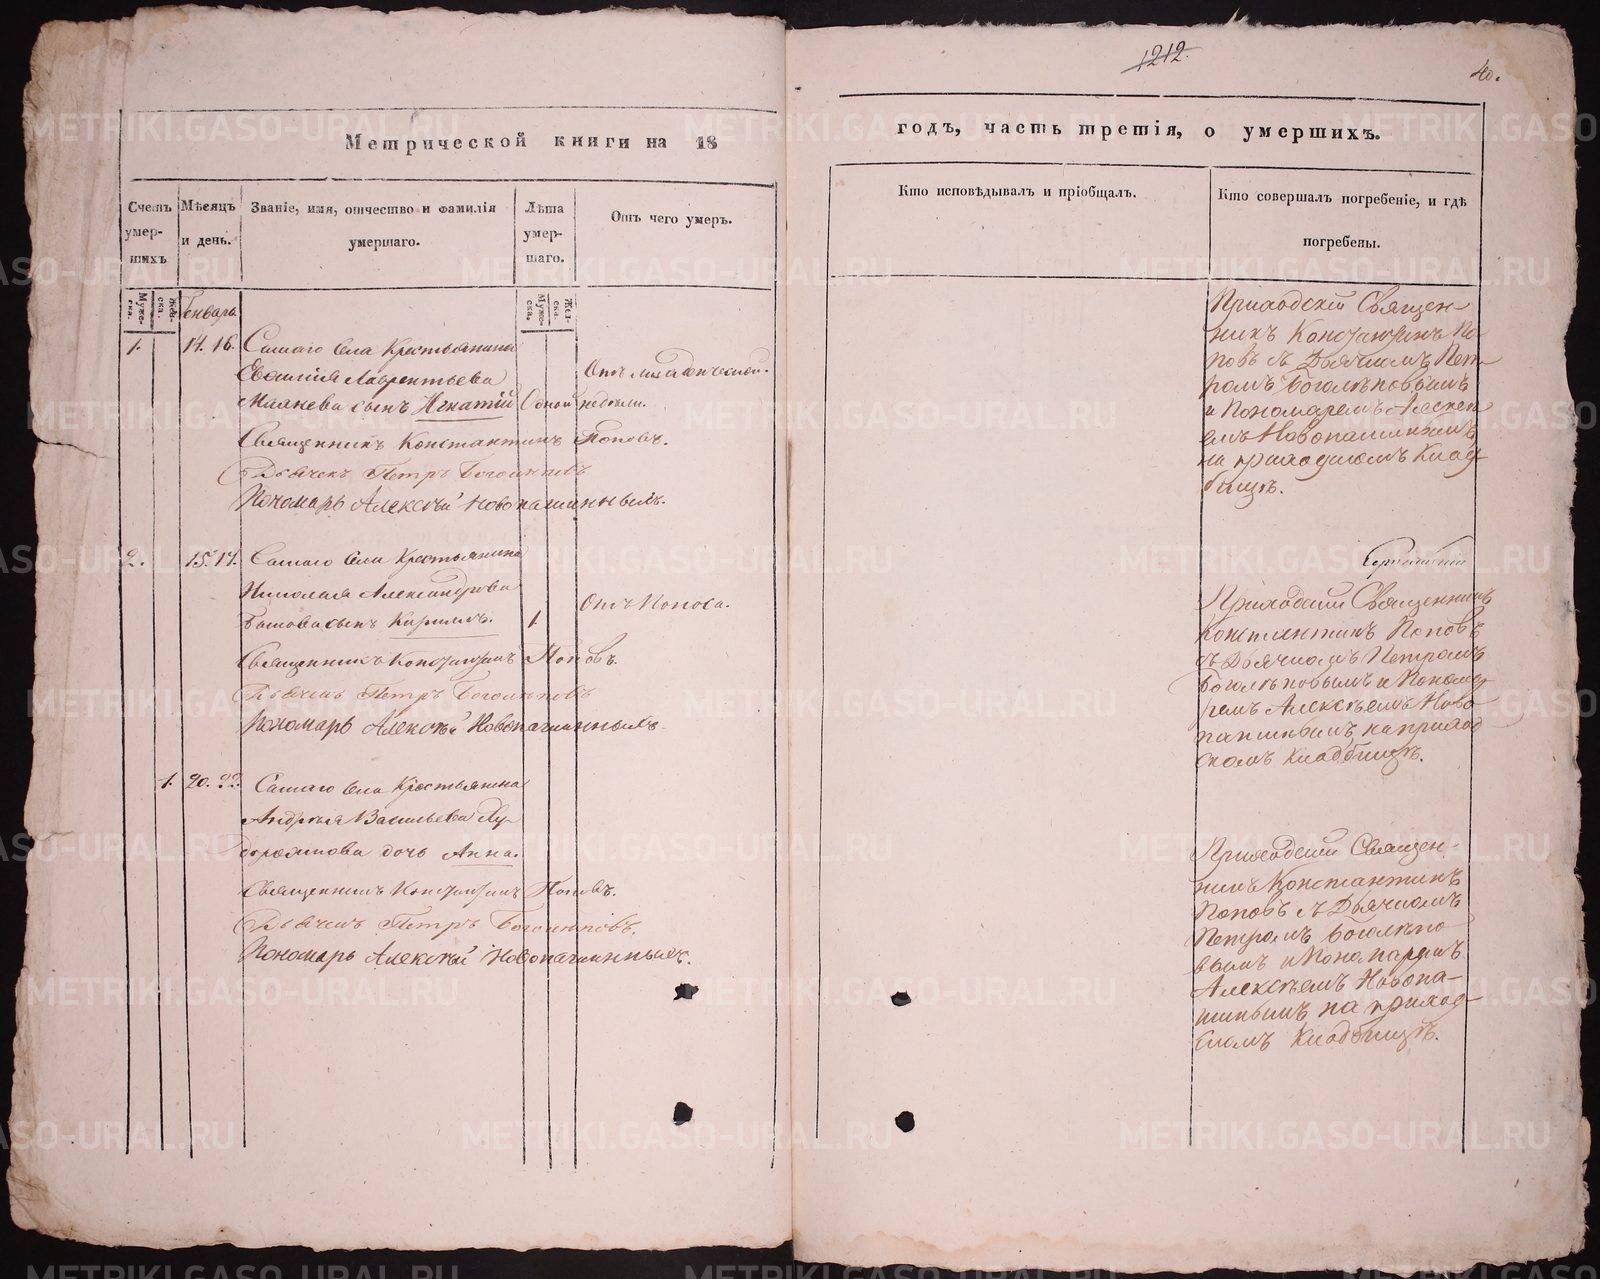 1212.
40.
Метрической книги на 18
годъ, часть третія, о умершихъ.
Счетъ умер-шихъ
Мѣсяцъ и день.
Званіе, имя, отчество и фамилія умершаго.
Лѣта умер-шаго.
Отъ чего умеръ.
Кто исповѣдывалъ и пріобщалъ.
Кто совершалъ погребеніе, и гдѣ погребены.
Муже-ска.
Жен-ска.
Муже-ска.
Жен-ска.
Генварь
1. 14. 16. Самаго села Крестьянина
Лаврентьева
сынъ Игнатій Одной недели.
Священникъ Константинъ Поповъ.
Дьячекъ Петръ Боголеповъ
Пономарь Алексѣй Новопашинныхъ.
Приходскій Священ-
никъ Константинъ По-
повъ съ Дьячкомъ Пет-
ромъ Боголѣповымъ
и Пономаремъ Алексѣ-
емъ Новопашинымъ
на приходскомъ Клад-
бищѣ.
2. 15. 17. Самаго села Крестьянина
Николая Александрова
сынъ Кириллъ. 1. Отъ Поноса.
Священникъ Константинъ Поповъ.
Дьячекъ Петръ Боголеповъ
Пономарь Алексѣй Новопашинныхъ.
Приходскій Священникъ
Константинъ Поповъ
съ Дьячкомъ Петромъ
Боголѣповымъ и Понома-
ремъ Алексѣемъ Ново-
пашинымъ на приход-
скомъ Кладбищѣ.
1. 20. 22. Самаго села Крестьянина
Андрея Васильева Ху-
дорожкова дочь Анна.
Священникъ Константинъ Поповъ.
Дьячекъ Петръ Боголеповъ.
Пономарь Алексѣй Новопашинныхъ.
Приходскій Священ-
никъ Константинъ
Поповъ съ Дьячкомъ
Петромъ Боголѣпо-
вымъ и Пономаремъ
Алексѣемъ Новопа-
шинымъ на приход-
скомъ Кладбищѣ.
METRIKI.GASO-URAL.RU